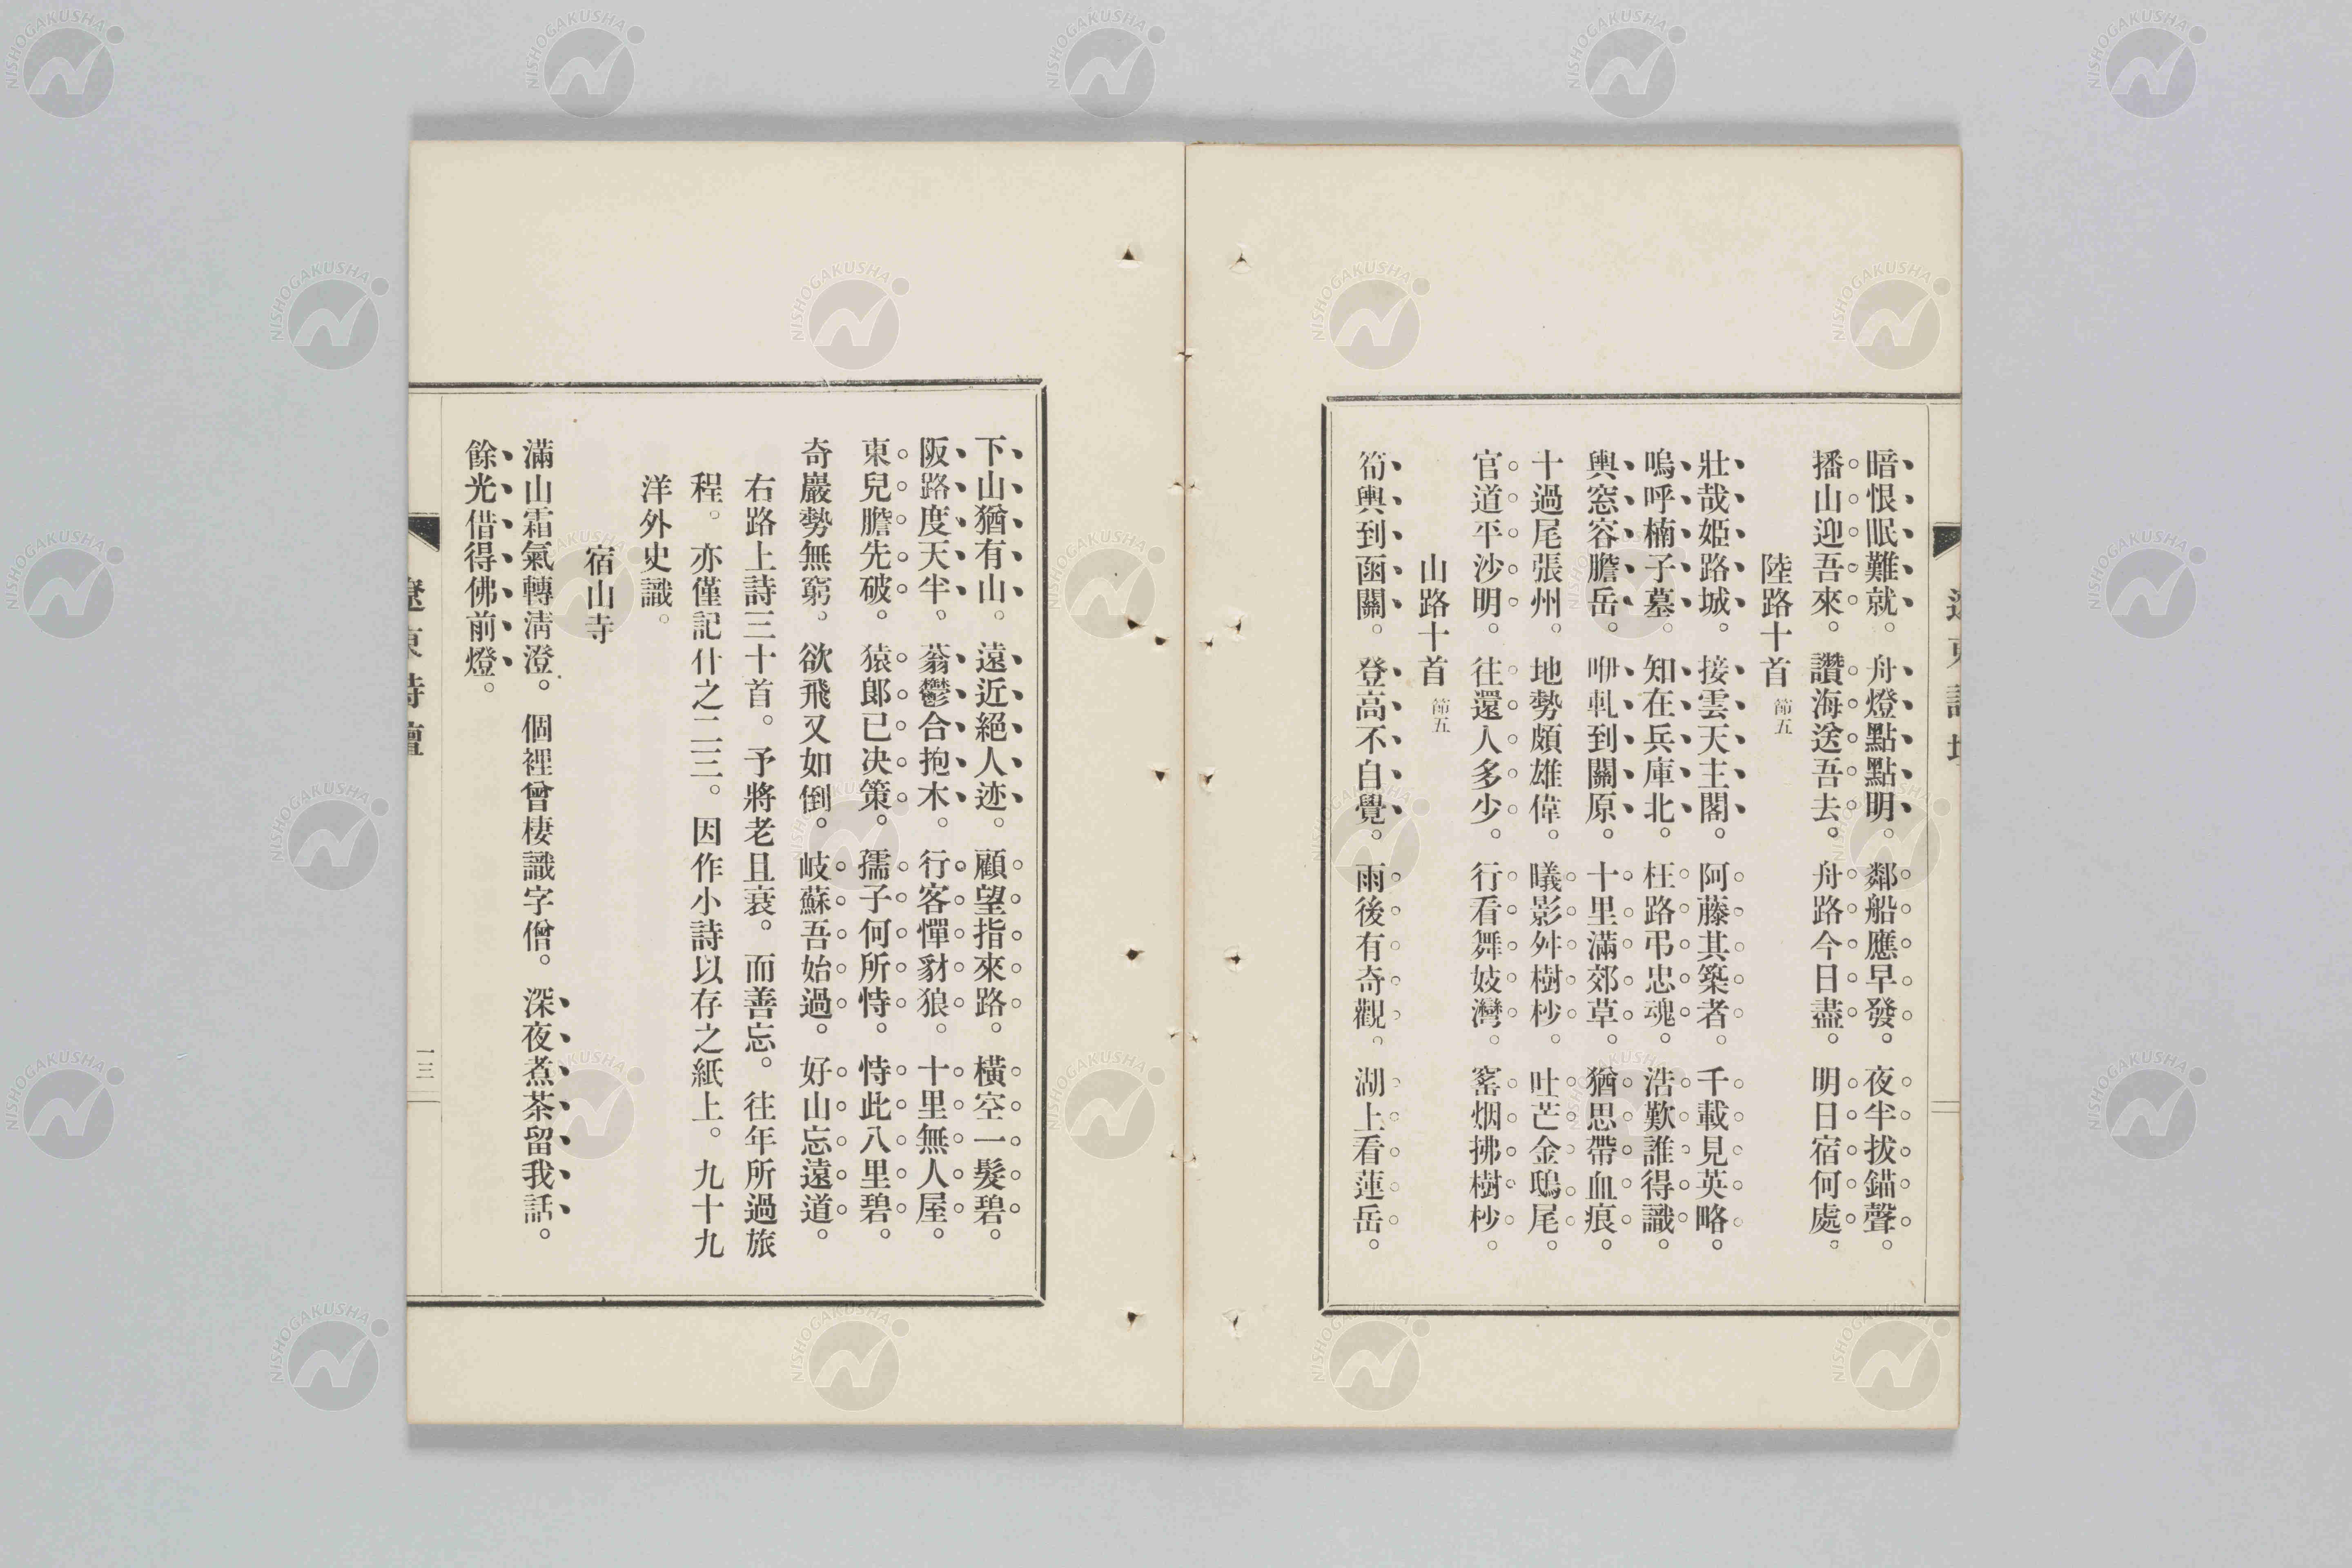 暗恨眠難就。舟燈點點明。鄰船應早發。夜半拔錨聲。
播山迎吾來。讚海送吾去。舟路今日盡。明日宿何處。
陸路十首 節五
壯哉姫路城。接雲天主閣。阿藤其築者。千載見英略。
嗚呼楠子墓。知在兵庫北。枉路弔忠魂。浩歎誰得識。
輿窓容膽岳。咿軋到關原。十里滿郊草。猶思帶血痕。
十過尾張州。地勢頗雄偉。曦影舛樹杪。吐芒金鴟尾。
官道平沙明。往還人多少。行看舞妓灣。窰烟拂樹杪。
山路十首 節五
筍輿到函關。登高不自覺。雨後有奇觀。湖上看蓮岳。
下山猶有山。遠近絕人迹。顧望指來路。橫空一髮碧。
阪路度天半。蓊鬱合抱木。行客憚豺狼。十里無人屋。
東兒膽先破。猿郎已決策。孺子何所恃。恃此八里碧。
奇巖勢無窮。欲飛又如倒。岐蘇吾始過。好山忘遠道。
右路上詩三十首。予將老且衰。而善忘。往年所過旅
程。亦僅記什之二三。因作小詩以存之紙上。九十九
洋外史識。
宿山寺
滿山霜氣轉淸澄。個裡曾棲識字僧。深夜煮茶留我話。
餘光借得佛前燈。
遼東詩壇
一三
NISHOGAKUSHA